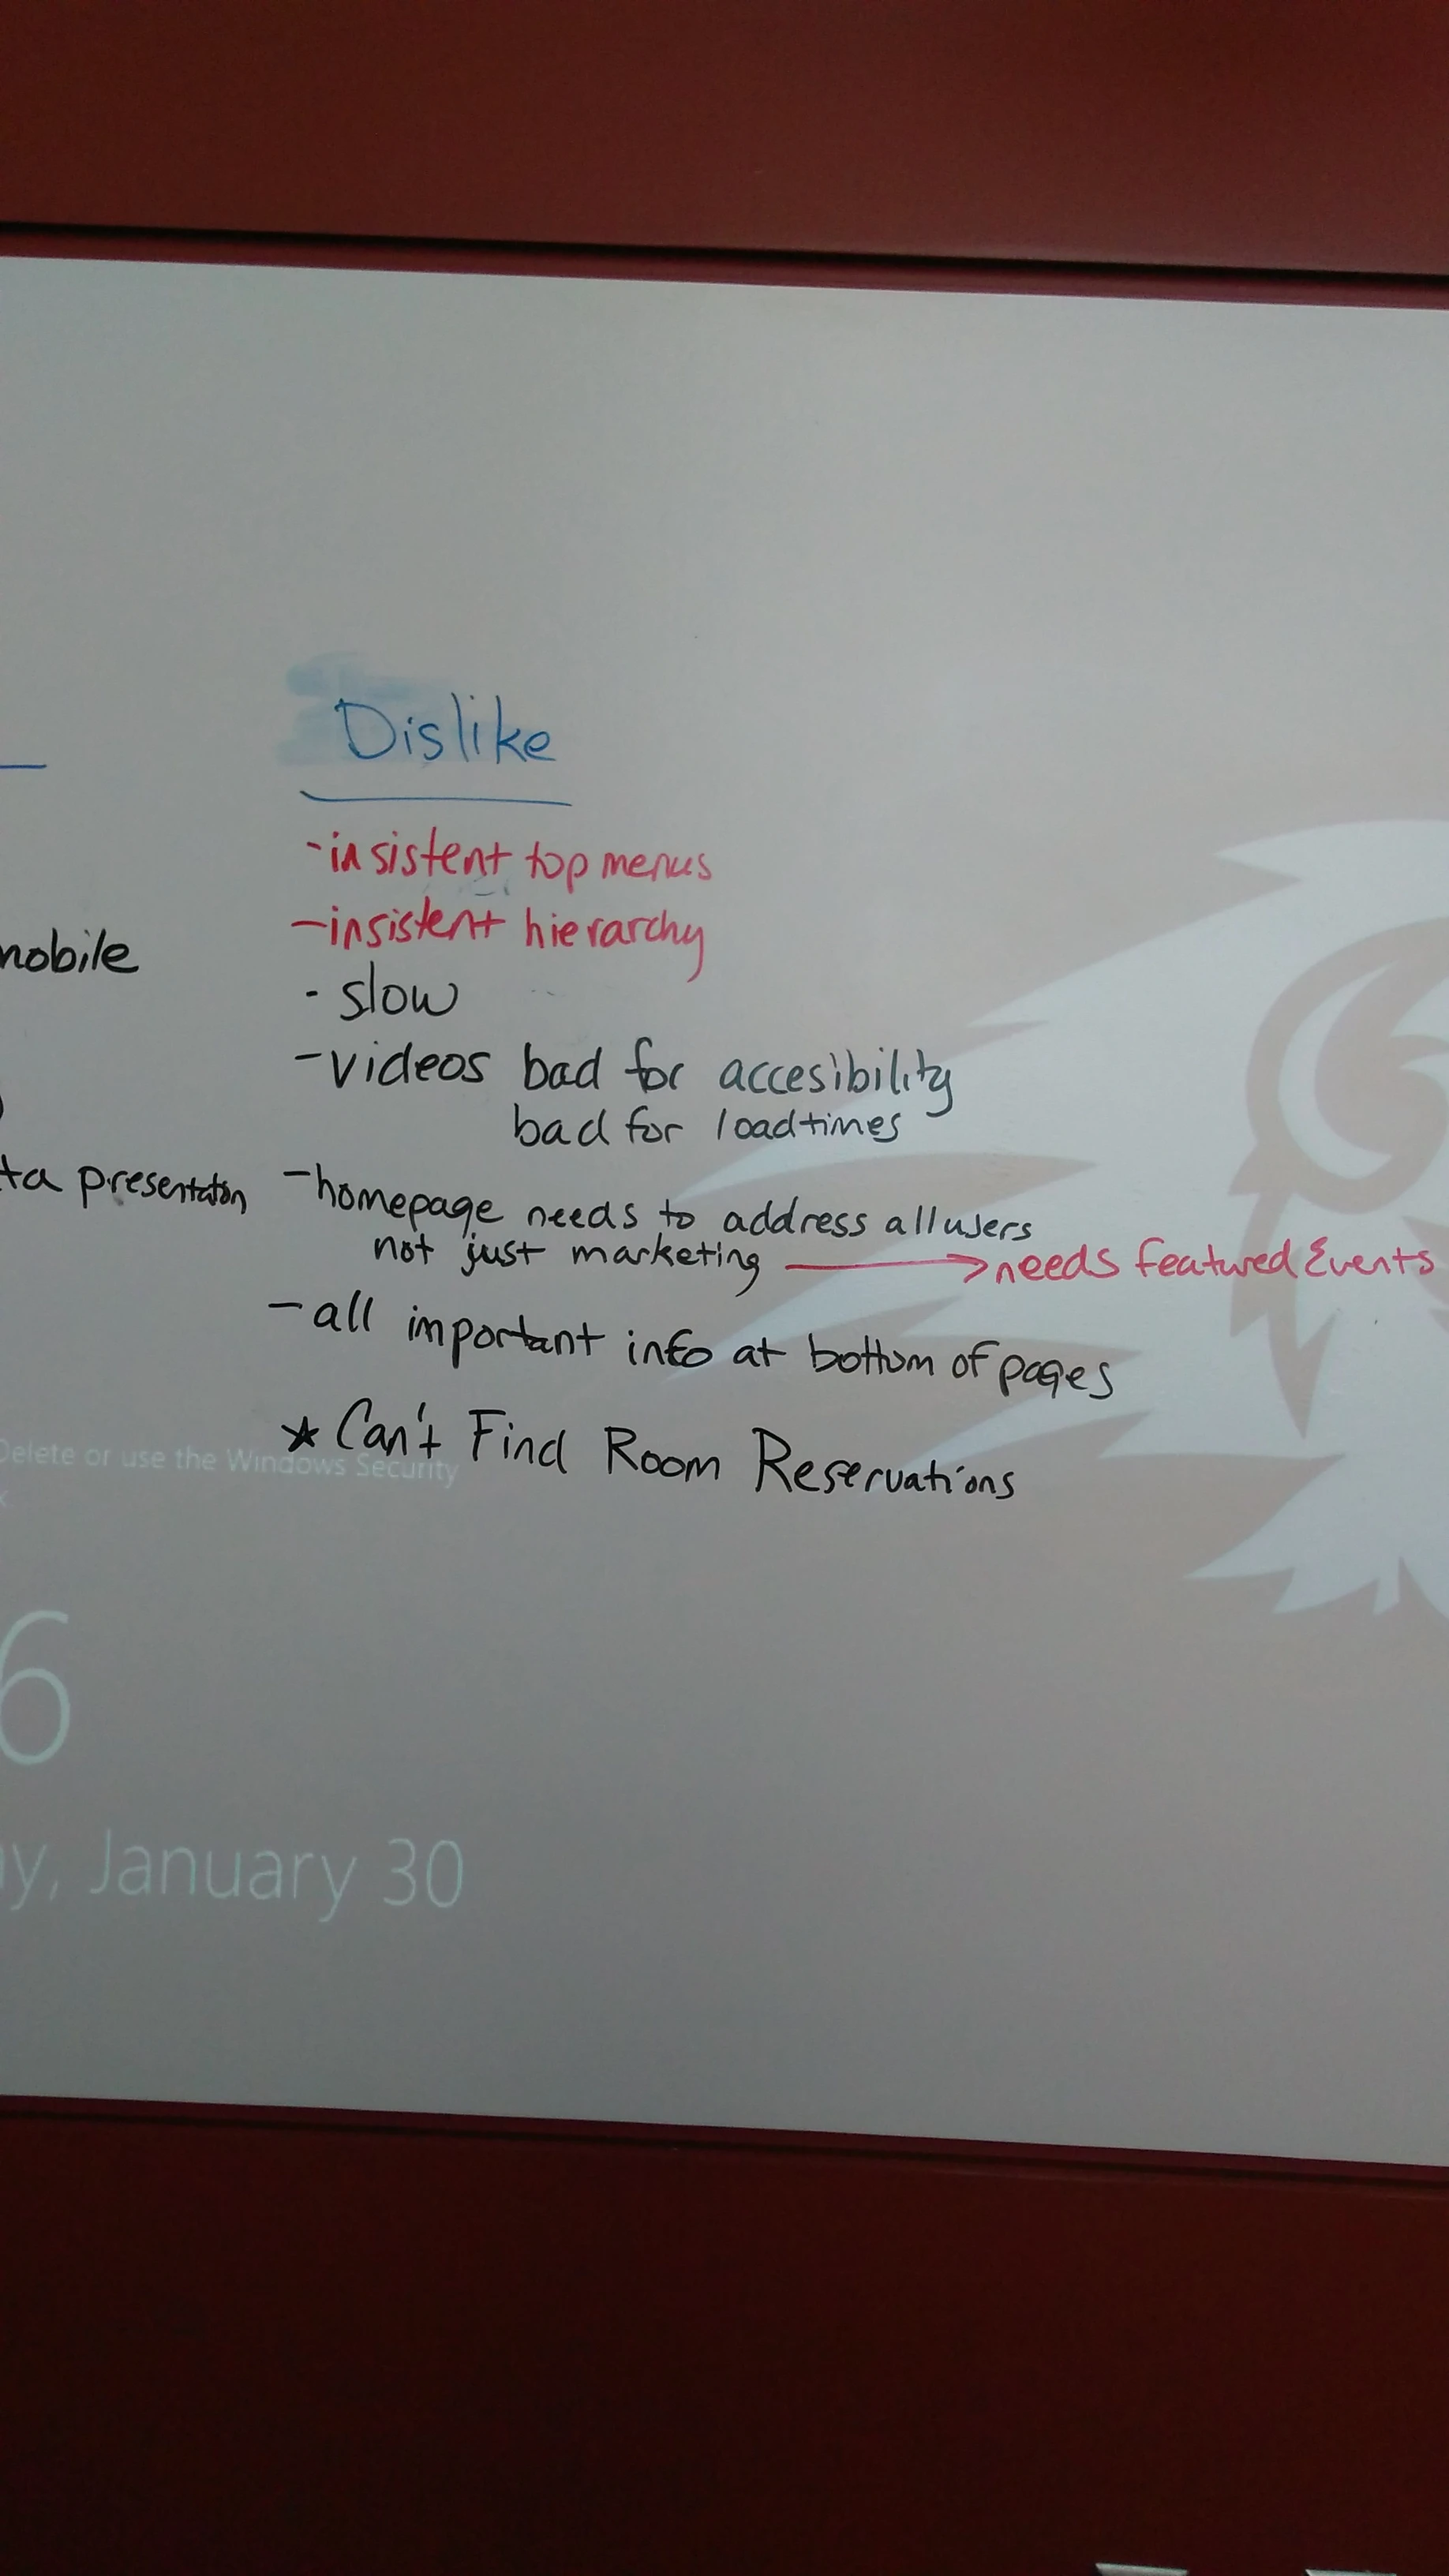 Dislike
-insistent top menus
-insistent hierarchy
mobile
- slow
-videos bad for accesibility
bad for loadtimes
ta presentation
-homepage needs to address all users
not just marketing → needs featured Events
-all important info at bottom of pages
★ Can't Find Room Reservations
Delete or use the Windows Security
6
y, January 30